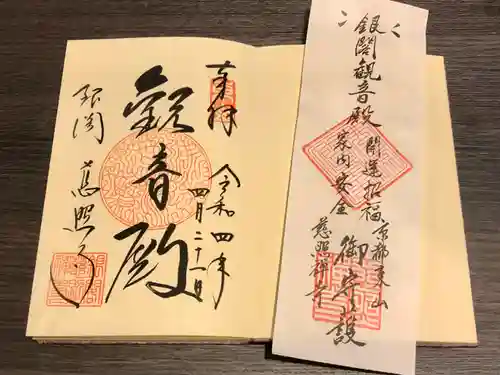 奉拝
令和四年
四月二十一日
観音殿
銀閣
慈照寺
銀閣観音殿
開運招福
家内安全
京都東山
慈照禅寺
御守護